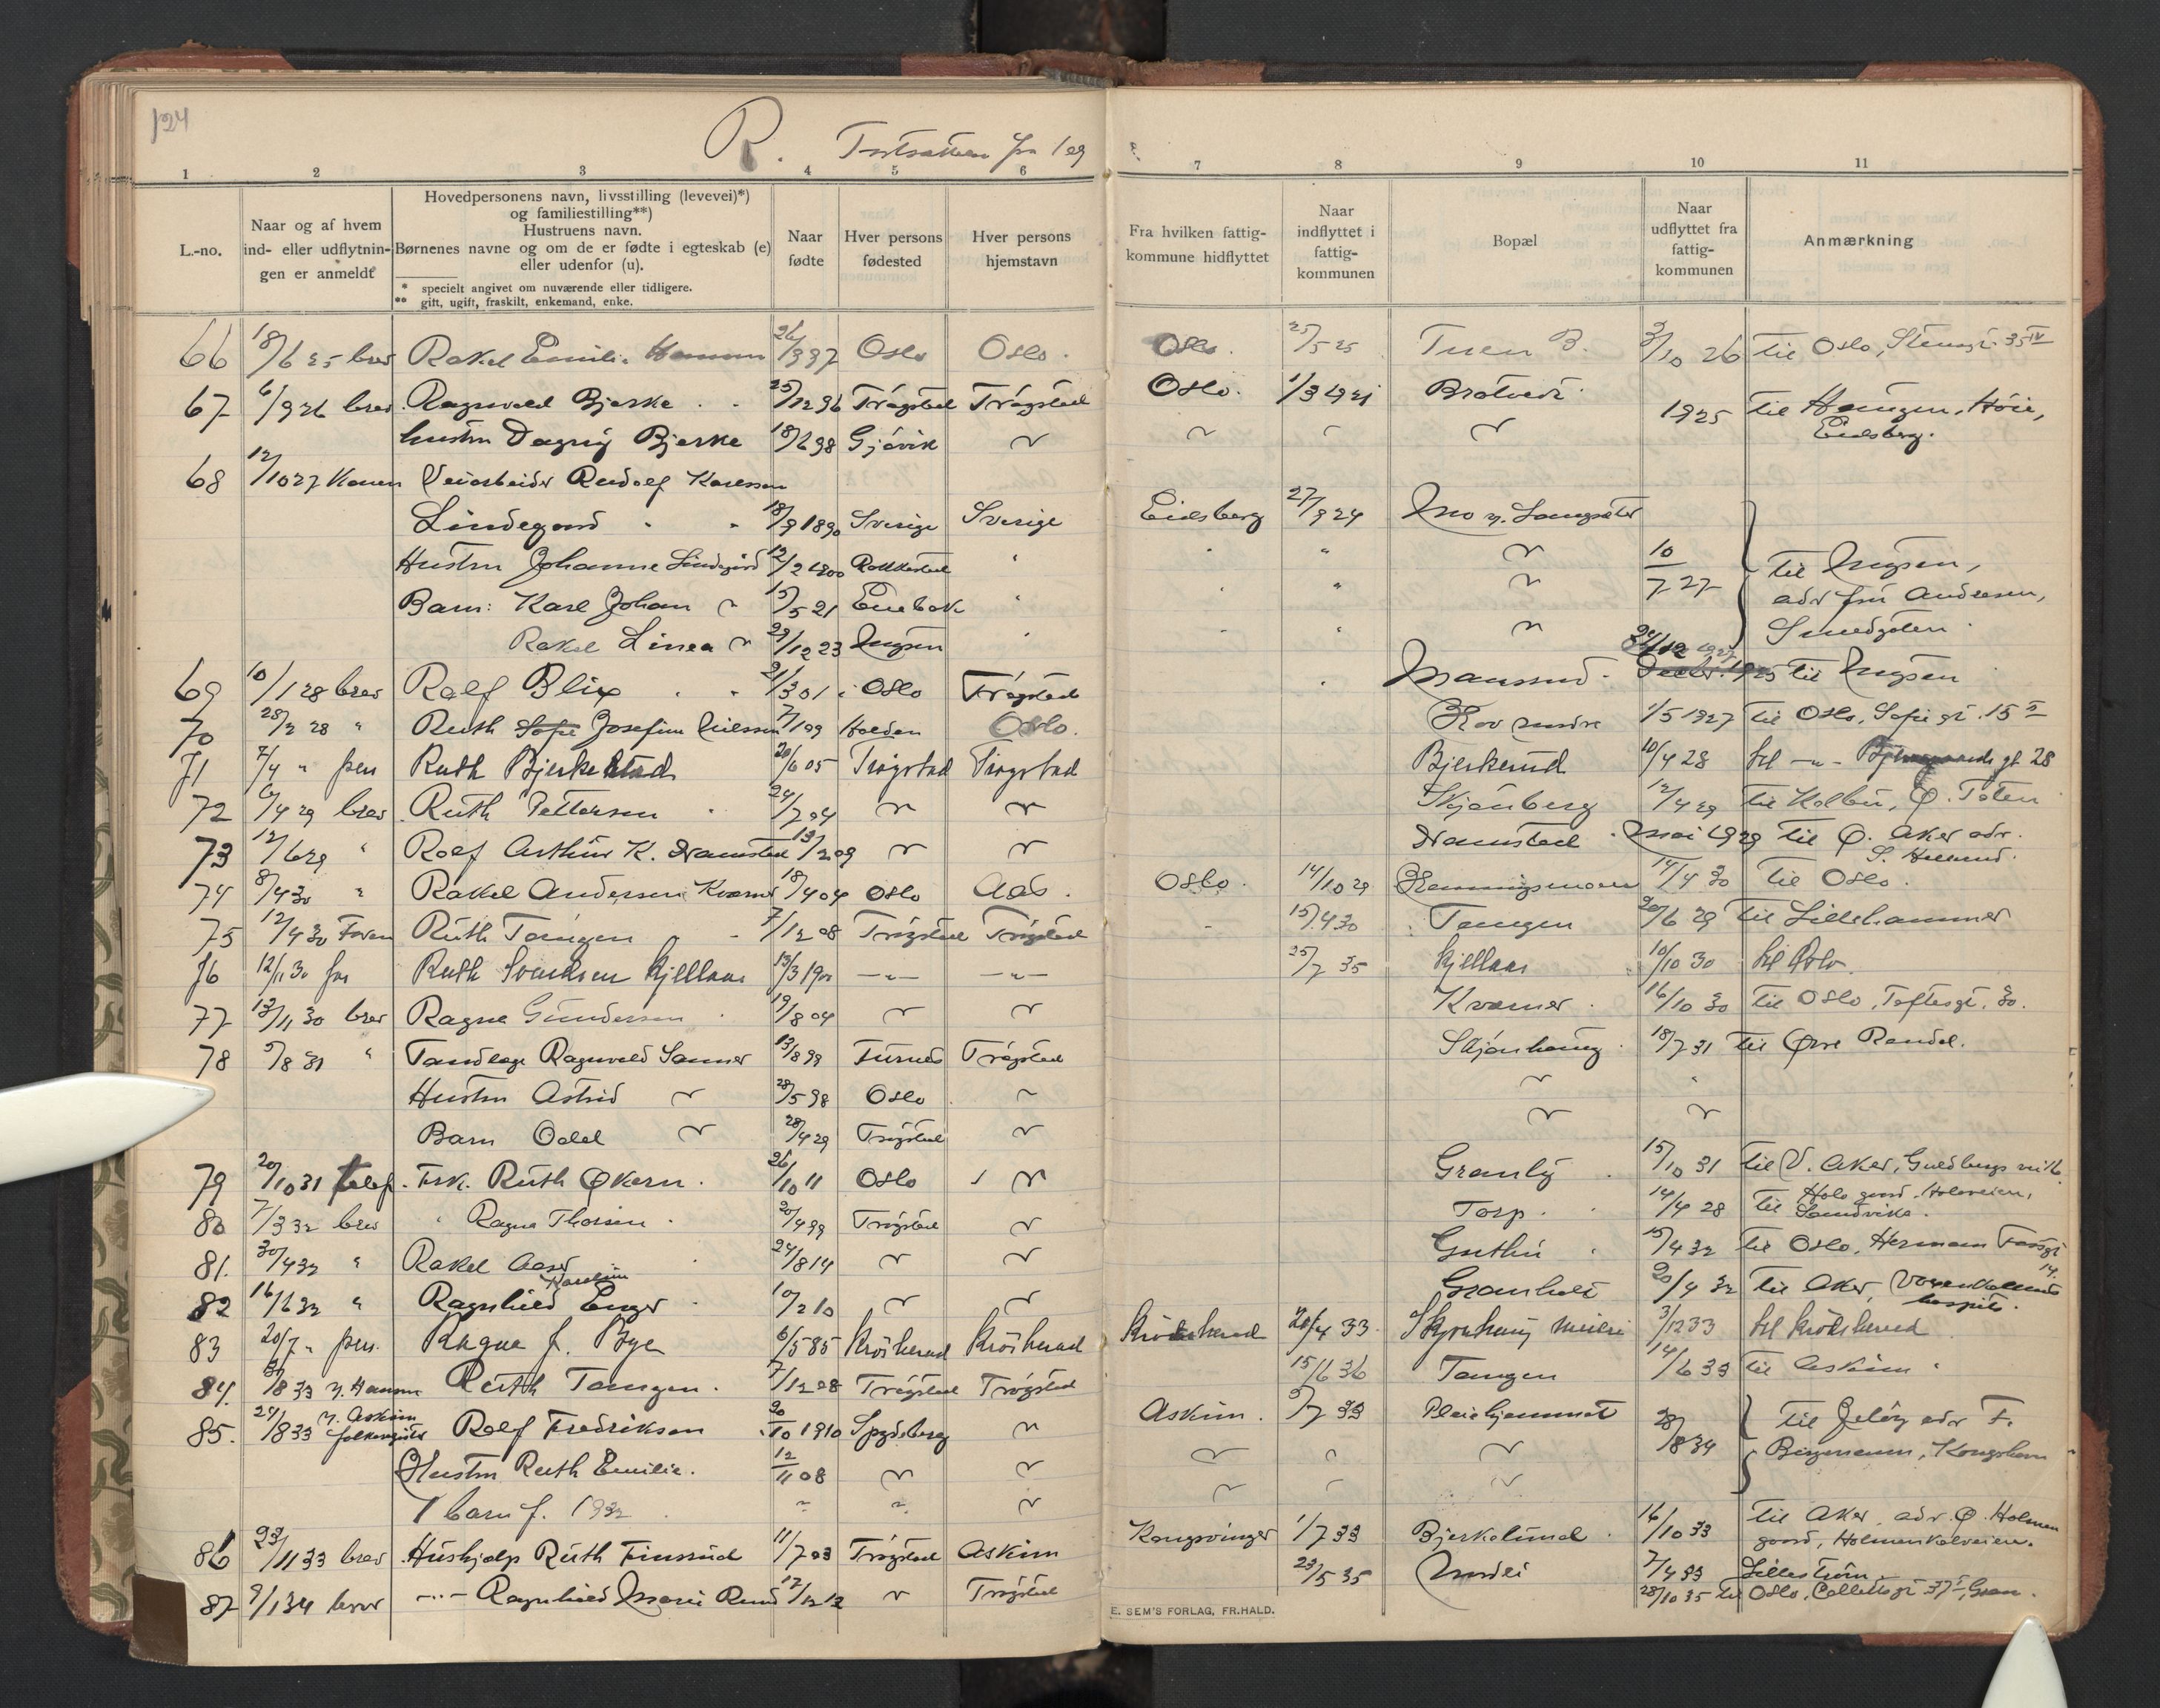 124
R. Fortsatten fra 109
1 2 3 4 5 6 7 8 9 10 11
L.-no.
Naar og af hvem ind- eller udflytningen er anmeldt
Hovedpersonens navn, livsstilling (levevei)*)
og familiestilling**)
Hustruens navn.
Børnenes navne og om de er fødte i egteskab (e)
eller udenfor (u).
* specielt angivet om nuværende eller tidligere.
** gift, ugift, fraskilt, enkemand, enke.
Naar fødte
Hver persons fødested
Hver persons hjemstavn
Fra hvilken fattigkommune hidflyttet
Naar indflyttet i fattigkommunen
Bopæl
Naar udflyttet fra fattigkommunen
Anmærkning
66 18/6 25 brev Rakel Emilie Oslo Oslo. Oslo. 25/5 25 Tuen B. 3/10 26 til Oslo, 35 IV
67 6/9 26 brev Ragnvald Bjerke 25/12 96 Trøgstad Trøgstad Oslo. 1/3 1921 Bråtvedt 1925 til Haugen, Høie,
hustru Dagny Bjerke 18/6 98 Gjøvik " " " " Eidsberg.
68 12/10 27 Konen Veiarbeider Rudolf Karlsson
Lindegård 18/9 1890 Sverige Sverige Eidsberg 27/9 24 Mo n. Langsæter
Hustru Johanne Lindegård 12/2 1900 Rakkestad " " " " 10/7 27 til Mysen,
Barn: Karl Johan " 15/5 21 Enebak " " " " adr fru Andersen,
Rakel Linea " 29/12 23 Mysen " " " " Smedgaten.
69 10/1 28 brev Rolf Blix 21/3 01 Oslo Trøgstad Monsrud 1927 til Mysen
70 28/2 28 " Ruth Sofie Josefine Nilssen 7/1 99 Halden Oslo. Skov søndre 1/5 1927 til Oslo, Sofiegt. 15 II
71 7/4 " pers Ruth Bjerkestad 20/6 05 Trøgstad Trøgstad Bjerkerud 10/4 28 til -"- gt 28
72 6/4 29 brev Ruth Pettersen 24/7 04 " " Skjønberg 12/4 29 til Kolbu, Ø. Toten
73 12/6 29 " Rolf Arthur K. Dramstad 13/2 09 " " Dramstad Mai 1929 til Ø. Aker adr.
74 8/4 30 " Rakel Andersen Kværner 18/4 04 Oslo Aas. Oslo. 14/10 29 Henningsmoen 14/4 30 til Oslo.
75 12/4 30 Faren Ruth Tangen 7/12 08 Trøgstad Trøgstad 15/4 30 Tangen 20/6 29 til Lillehammer
76 12/11 30 far Ruth Svendsen Kjellaas 13/3 190 -"- -"- 25/7 35 Kjellaas 10/10 30 til Oslo.
77 13/11 30 brev Ragna Gundersen 19/8 04 " " Kværner 16/10 30 til Oslo, Toftesgt. 30.
78 5/8 31 " Tandlæge Ragnvald Sanner 13/8 99 Furnes Trøgstad Skjønhaug 18/7 31 til Øvre Rendal.
Hustru Astrid " 28/5 98 Oslo " " "
Barn Odd " 28/4 29 Trøgstad " " "
79 20/10 31 telef. Frk. Ruth Økern. 26/10 11 Oslo " Granly 15/10 31 til V. Aker, Guldbergs
80 7/3 32 brev " Ragna Thorsen 20/4 99 Trøgstad " Torp. 14/4 28 til Holo gård, Holoveien,
Sandvika.
81. 30/4 32 " Rakel Aaser 24/8 14 " " Guthu 15/4 32 til Oslo, Herman Fossgt
14.
82 16/6 32 " Ragnhild Karoline Enger 10/2 10 " " Granholt 20/4 32 til Aker,
hospits.
83 20/7 " pers. Ragna J. Bye 6/5 85 Krødsherad Krødsherad Krødsherad 20/4 33 Skjønhaug meieri 3/12 33 til Krødsherad
84. 31/8 33 Ruth Tangen. 7/12 08 Trøgstad Trøgstad 15/6 36 Tangen 14/6 33 til Askim
85. 24/8 33 v. Askim folkeregister Rolf Fredriksen 20/10 1910 Spydeberg " Askim. 5/7 33 Pleiehjemmet 28/8 34 til Jeløy adr F.
Hustru Ruth Emilie. 12/11 08 " " " " " Kongshavn
1 barn f. 1932 " " " " " "
86 23/11 33 brev Hushjelp Ruth Finsrud 11/7 03 Trøgstad Askim Kongsvinger 1/7 33 Bjerkelund 16/10 33 til Aker, adr. Ø. Holmen
gård, Holmenkolveien.
87 9/1 34 brev -"- Ragnhild Marie Rud 17/12 12 " Trøgstad 23/5 35 7/4 33 Lillestrøm
28/10 35 til Oslo, Collettsgt 37
E. SEM'S FORLAG, FR.HALD.